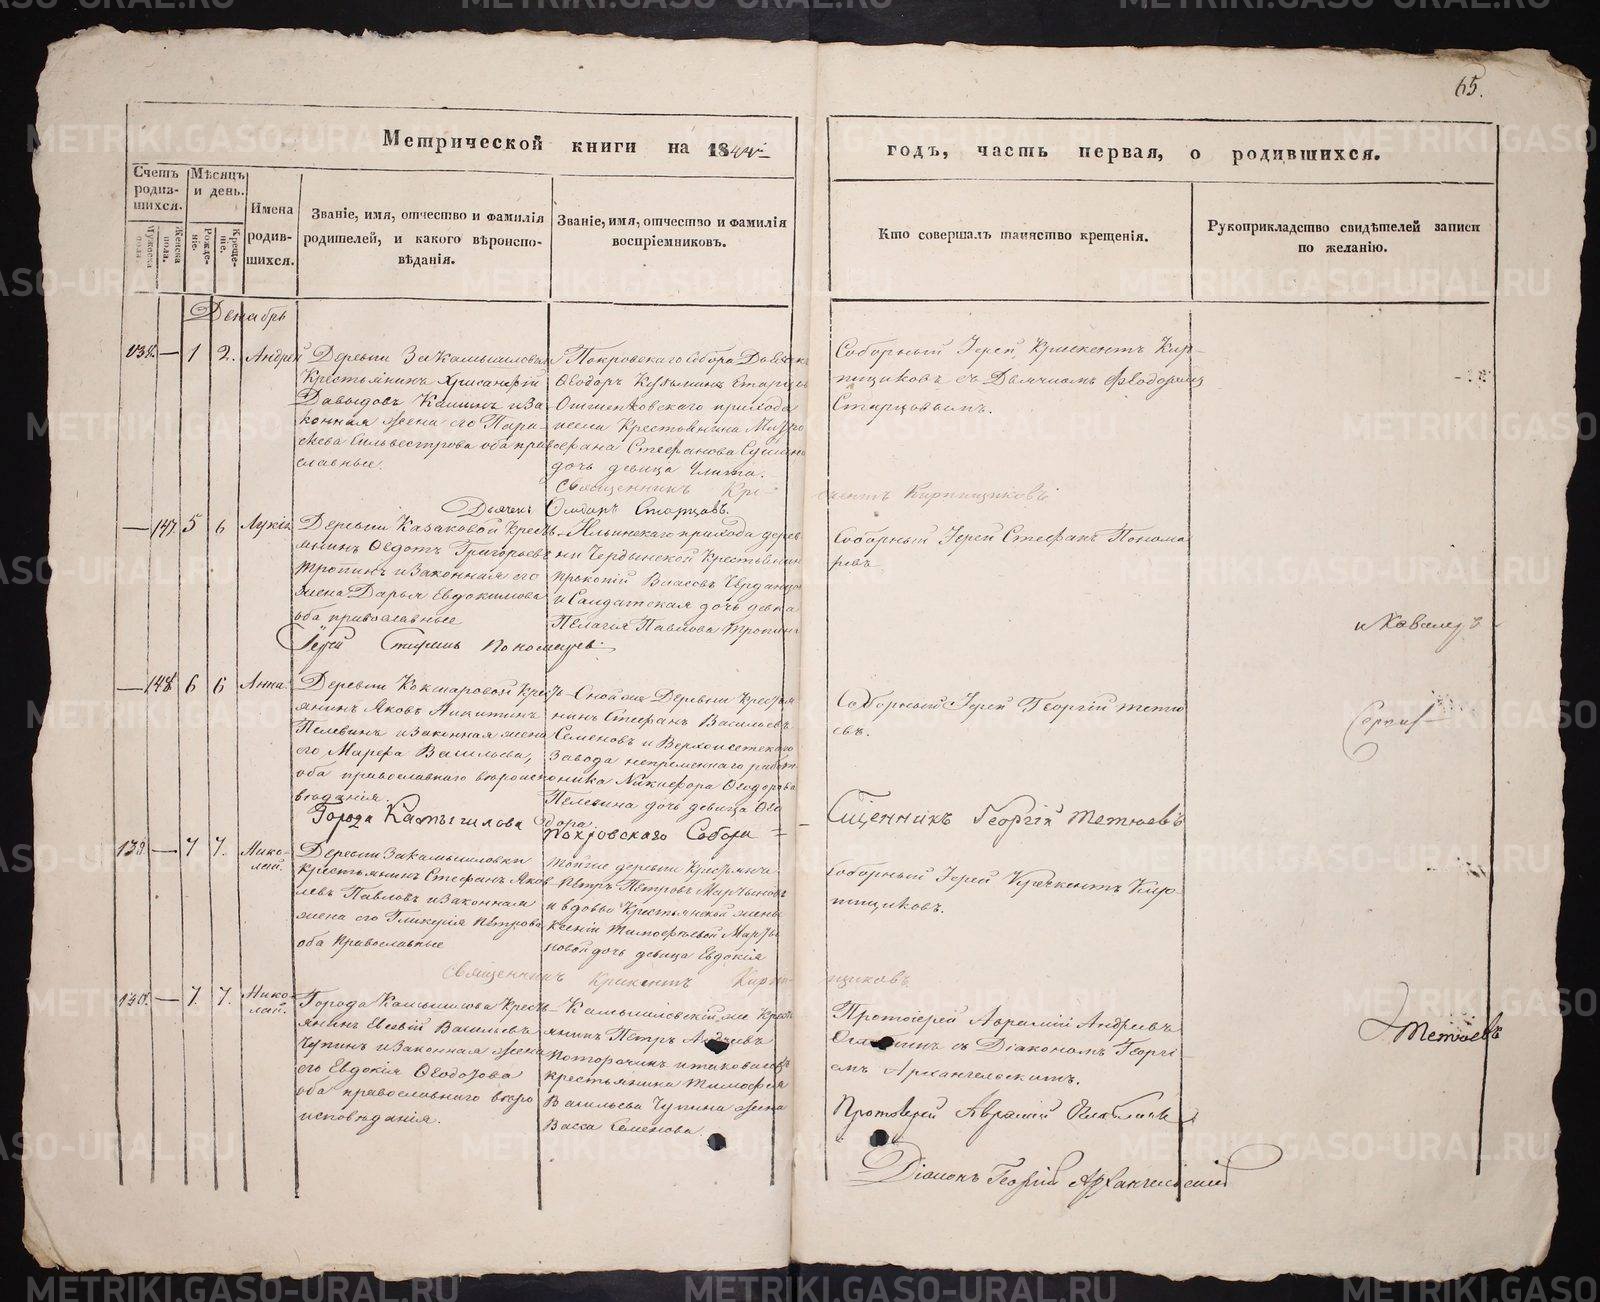 65.
Метрической книги на 1844й
годъ, часть первая, о родившихся.
Счетъ родившихся.
Мужеска пола.
Женска пола.
Мѣсяцъ и день.
Рожденіе.
Крещеніе.
Имена родившихся.
Званіе, имя, отчество и фамилія
родителей, и какого вѣроиспо-
вѣданія.
Званіе, имя, отчество и фамилія
воспріемниковъ.
Кто совершалъ таинство крещенія.
Рукоприкладство свидѣтелей записи
по желанію.
Декабрь
138. — 1 2. Андрей
Деревни Закамышловки
Крестьянинъ Хрисанфій
Давыдовъ Кашинъ и За-
конная жена его Пара-
скева Сильвестрова оба право-
славные.
Покровскаго Собора Дьячекъ
Ѳеодоръ Кузьминъ Старцовъ
прихода
Крестьянина Митро-
фана Стефанова
дочь девица Улита.
Соборный Іерей Крискентъ Кир-
пщиковъ съ Дьячкомъ Ѳеодоромъ
Старцовымъ.
Священникъ Крискентъ Кирпищиковъ
Дьячекъ Ѳеодоръ Старцовъ.
— 147. 5 6 Лукія
Деревни Казаковой Кресть-
янинъ Ѳедотъ Григорьевъ
Тропинъ и Законная его
жена Дарья Евдокимова
оба православные
Ильинскаго прихода дерев-
ни Чердынской Крестьянинъ
Прокопій Власовъ Чердынцовъ
и Салдатская дочь девка
Пелагія Павлова Тропина
Соборный Іерей Стефанъ Понома-
ревъ
Іерей Стефанъ Пономаревъ
и Кавалеръ
— 148. 6 6 Анна.
Деревни Кокшаровой Кресть-
янинъ Яковъ Никитинъ
Пелевинъ и законная жена
его Марѳа Васильева,
оба православнаго вѣроиспо-
вѣданія.
Стефанъ Васильевъ
Семеновъ и Верхоисетскаго
Завода непременнаго работ-
ника Никифора Ѳеодорова
Пелевина дочь девица Ѳео-
дора.
Соборный Іерей Георгій Тетю-
евъ.
Сергій
Города Камышлова Покровскаго Собора
Сщенникъ Георгій Тетюевъ
139. — 7 7. Нико-
лай.
Деревни Закамышловки
крестьянинъ Стефанъ Яков-
левъ Павловъ и законная
жена его Гликерія Петрова
оба Православные
Тойже деревни Крестьянинъ
Петръ Петровъ Мартьяновъ
и вдовы Крестьянской жены
Ксеніи Тимофѣевой Мартья-
новой дочь девица Евдокія
Соборный Іерей Крискентъ Кир-
пищиковъ.
Священникъ Крискентъ Кирпищиковъ.
140. — 7. 7. Нико-
лай.
Города Камышлова Кресть-
янинъ Евсевій Васильевъ
Чупинъ и законная жена
его Евдокія Ѳеодотова
оба православнаго вѣро-
исповѣданія.
Камышловскій же Крест-
янинъ Петръ Андреевъ
Поторочинъ и таковаго же
крестьянина Тимофея
Васильева Чупина жена
Васса Семенова
Протоіерей Аврамій Андреевъ
съ Діакономъ Георгі-
емъ Архангельскимъ.
Тетюевъ
Протоіерей Аврамій
Діаконъ Георгій Архангельскій
METRIKI.GASO-URAL.RU